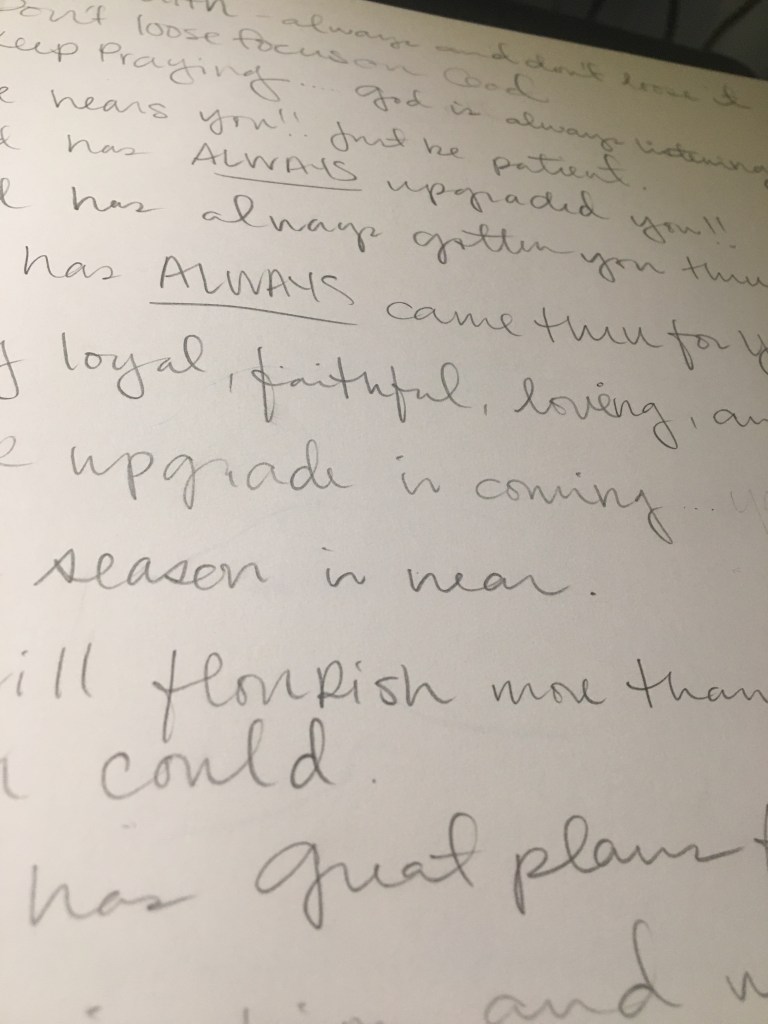 always and don't loose it
Don't loose focus on God
Keep Praying.... God is always listening
hears you!! Just be patient.
has ALWAYS upgraded you!!
has always gotten you thru
has ALWAYS came thru for
loyal, faithful, loving,
upgrade is coming...
season is near.
flourish more than
could.
has great plans
and